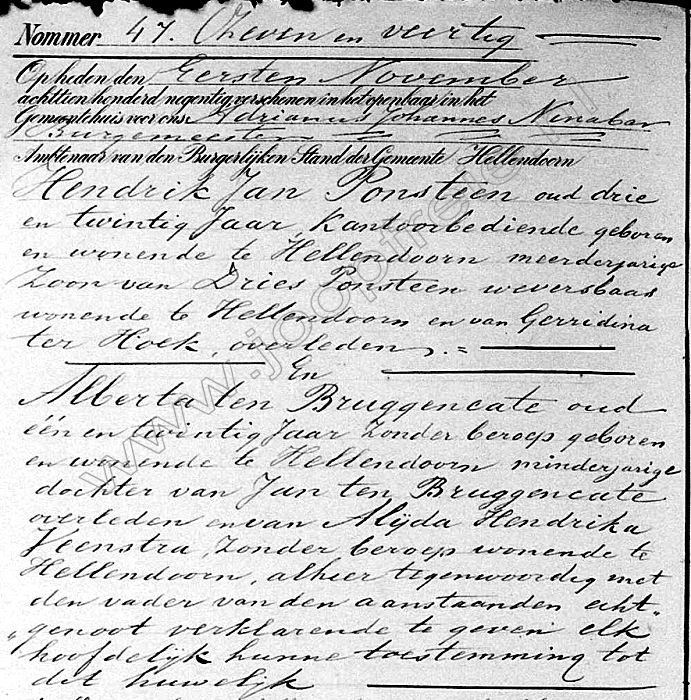 Nommer 47. Zeven en veertig
Op heden den Eersten November
achttien honderd negentig verschenen in het openbaar in het
Gemeentehuis voor ons Adrianus Johannes Ninaber
Burgemeester
Ambtenaar van den Burgerlijken Stand der Gemeente Hellendoorn
Hendrik Jan Ponsteen oud drie
en twintig Jaar, Kantoorbediende geboren
en wonende te Hellendoorn meerderjarige
Zoon van Dries Ponsteen weversbaas
wonende te Hellendoorn en van Gerridina
ter Hoek, overleden.
En
Alberta ten Bruggencate oud
één en twintig Jaar Zonder beroep geboren
en wonende te Hellendoorn minderjarige
dochter van Jan ten Bruggencate
overleden en van Alijda Hendrika
Veenstra, Zonder beroep wonende te
Hellendoorn, alhier tegenwoordig met
den vader van den aanstaanden echt„
„genoot verklarende te geven elk
hoofdelijk hunne toestemming tot
dit huwelijk